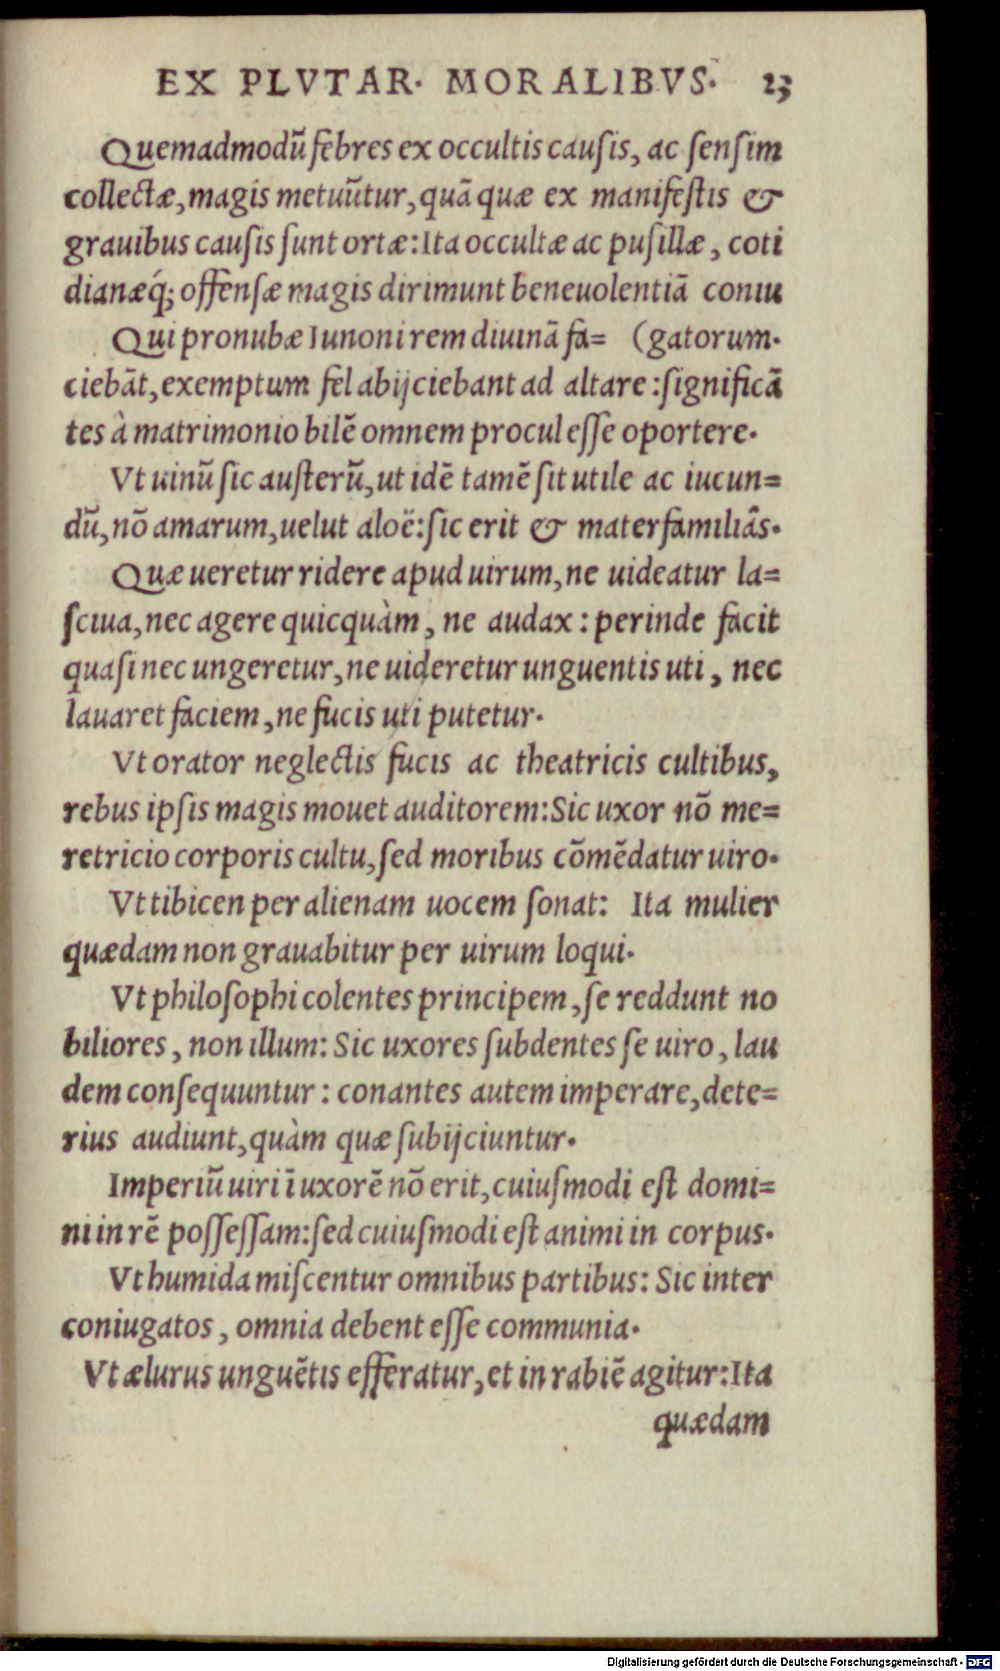 EX PLVTAR· MORALIBVS· 23
Quemadmodũ febres ex occultis causis, ac sensim
collectæ, magis metuũtur, quã quæ ex manifestis &
grauibus causis sunt ortæ: Ita occultæ ac pusillæ, coti
dianæq́; offensæ magis dirimunt beneuolentiã coniu
Qui pronubæ Iunoni rem diuinã fa= (gatorum·
ciebãt, exemptum fel abijciebant ad altare: significã
tes à matrimonio bilẽ omnem procul esse oportere·
Vt uinũ sic austerũ, ut idẽ tamẽ sit utile ac iucun=
dũ, nõ amarum, uelut aloë: sic erit & materfamiliâs·
Quæ ueretur ridere apud uirum, ne uideatur la=
sciua, nec agere quicquàm, ne audax: perinde facit
quasi nec ungeretur, ne uideretur unguentis uti, nec
lauaret faciem, ne fucis uti putetur·
Vt orator neglectis fucis ac theatricis cultibus,
rebus ipsis magis mouet auditorem: Sic uxor nõ me=
retricio corporis cultu, sed moribus cõmẽdatur uiro·
Vt tibicen per alienam uocem sonat: Ita mulier
quædam non grauabitur per uirum loqui·
Vt philosophi colentes principem, se reddunt no
biliores, non illum: Sic uxores subdentes se uiro, lau
dem consequuntur: conantes autem imperare, dete=
rius audiunt, quàm quæ subijciuntur·
Imperiũ uiri ĩ uxorẽ nõ erit, cuiusmodi est domi=
ni in rẽ possessam: sed cuiusmodi est animi in corpus·
Vt humida miscentur omnibus partibus: Sic inter
coniugatos, omnia debent esse communia·
Vt ælurus unguẽtis efferatur, et in rabiẽ agitur: Ita
quædam
Digitalisierung gefördert durch die Deutsche Forschungsgemeinschaft - DFG